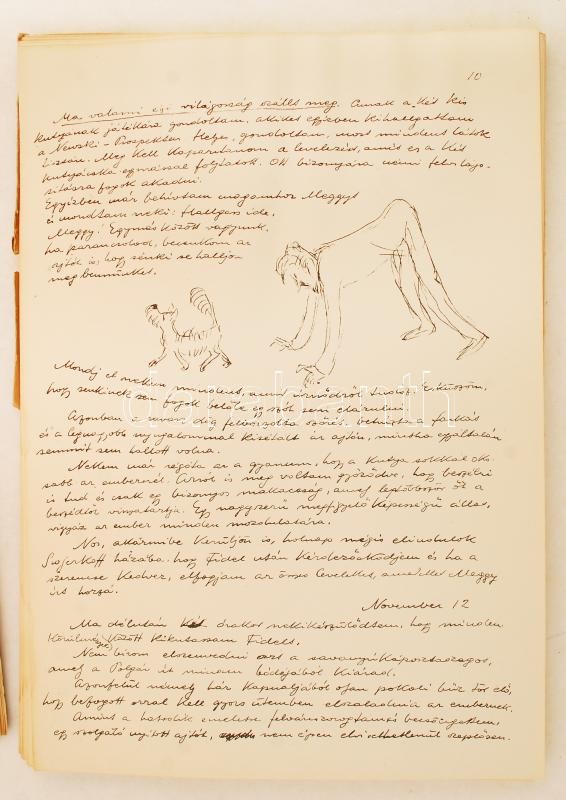 10
Ma valami égi világosság szállt meg. Annak a két kis
kutyának játékára gondoltam, akiket egyszer kihallgattam
a Newski-Prospekten. Helyes, gondoltam, most mindent látok
tisztán. Meg kell kaparintanom a levelezést, amit ez a két
kutyácska egymással folytatott. Ott bizonyára némi felvilágo-
sításra fogok akadni.
Egyízben már behívtam magamhoz Meggyt
és mondtam neki: Hallgass ide,
Meggy! Egymás között vagyunk,
ha parancsolod, becsukom az
ajtót is, hogy senki se halljon
meg bennünket.
Mondj el nekem mindent, amit úrnődről tudsz. Esküszöm,
hogy senkinek sem fogok belőle egy szót sem elárulni.
Azonban a ravasz dög felborzolta szőrét, behúzta a farkát
és a legnagyobb nyugalommal kisétált az ajtón, mintha egyáltalán
semmit sem hallott volna.
Nekem már régóta az a gyanum, hogy a kutya sokkal oko-
sabb az embernél. Arról is meg voltam győződve, hogy beszélni
is tud és csak egy bizonyos makacsság, amely őt a
beszédtől visszatartja. Egy nagyszerű megfigyelőképességű állat,
vigyáz az ember minden mozdulatára.
Nos, akármibe kerüljön is, holnap mégis elindulok
házába, hogy Fidel után kérdezősködjem és ha a
szerencse kedvez, elfogjam az összes leveleket, amelyeket Meggy
írt hozzá.
November 12
Ma délután két órakor nekikészülődtem, hogy minden
körülmények között kikutassam Fidelt.
Nem bírom elszenvedni ezt a savanyúkáposztaszagot,
amely a Polgár út minden bódéjából kiárad.
Azonfelül némely ház kapualjából olyan pokoli bűz tör elő,
hogy befogott orral kell gyors ütemben elszaladnia az embernek.
Amint a hatodik emeletre felvánszorogtam és becsöngettem,
egy szolgáló nyitott ajtót, nem éppen szeplősen.
darabanth